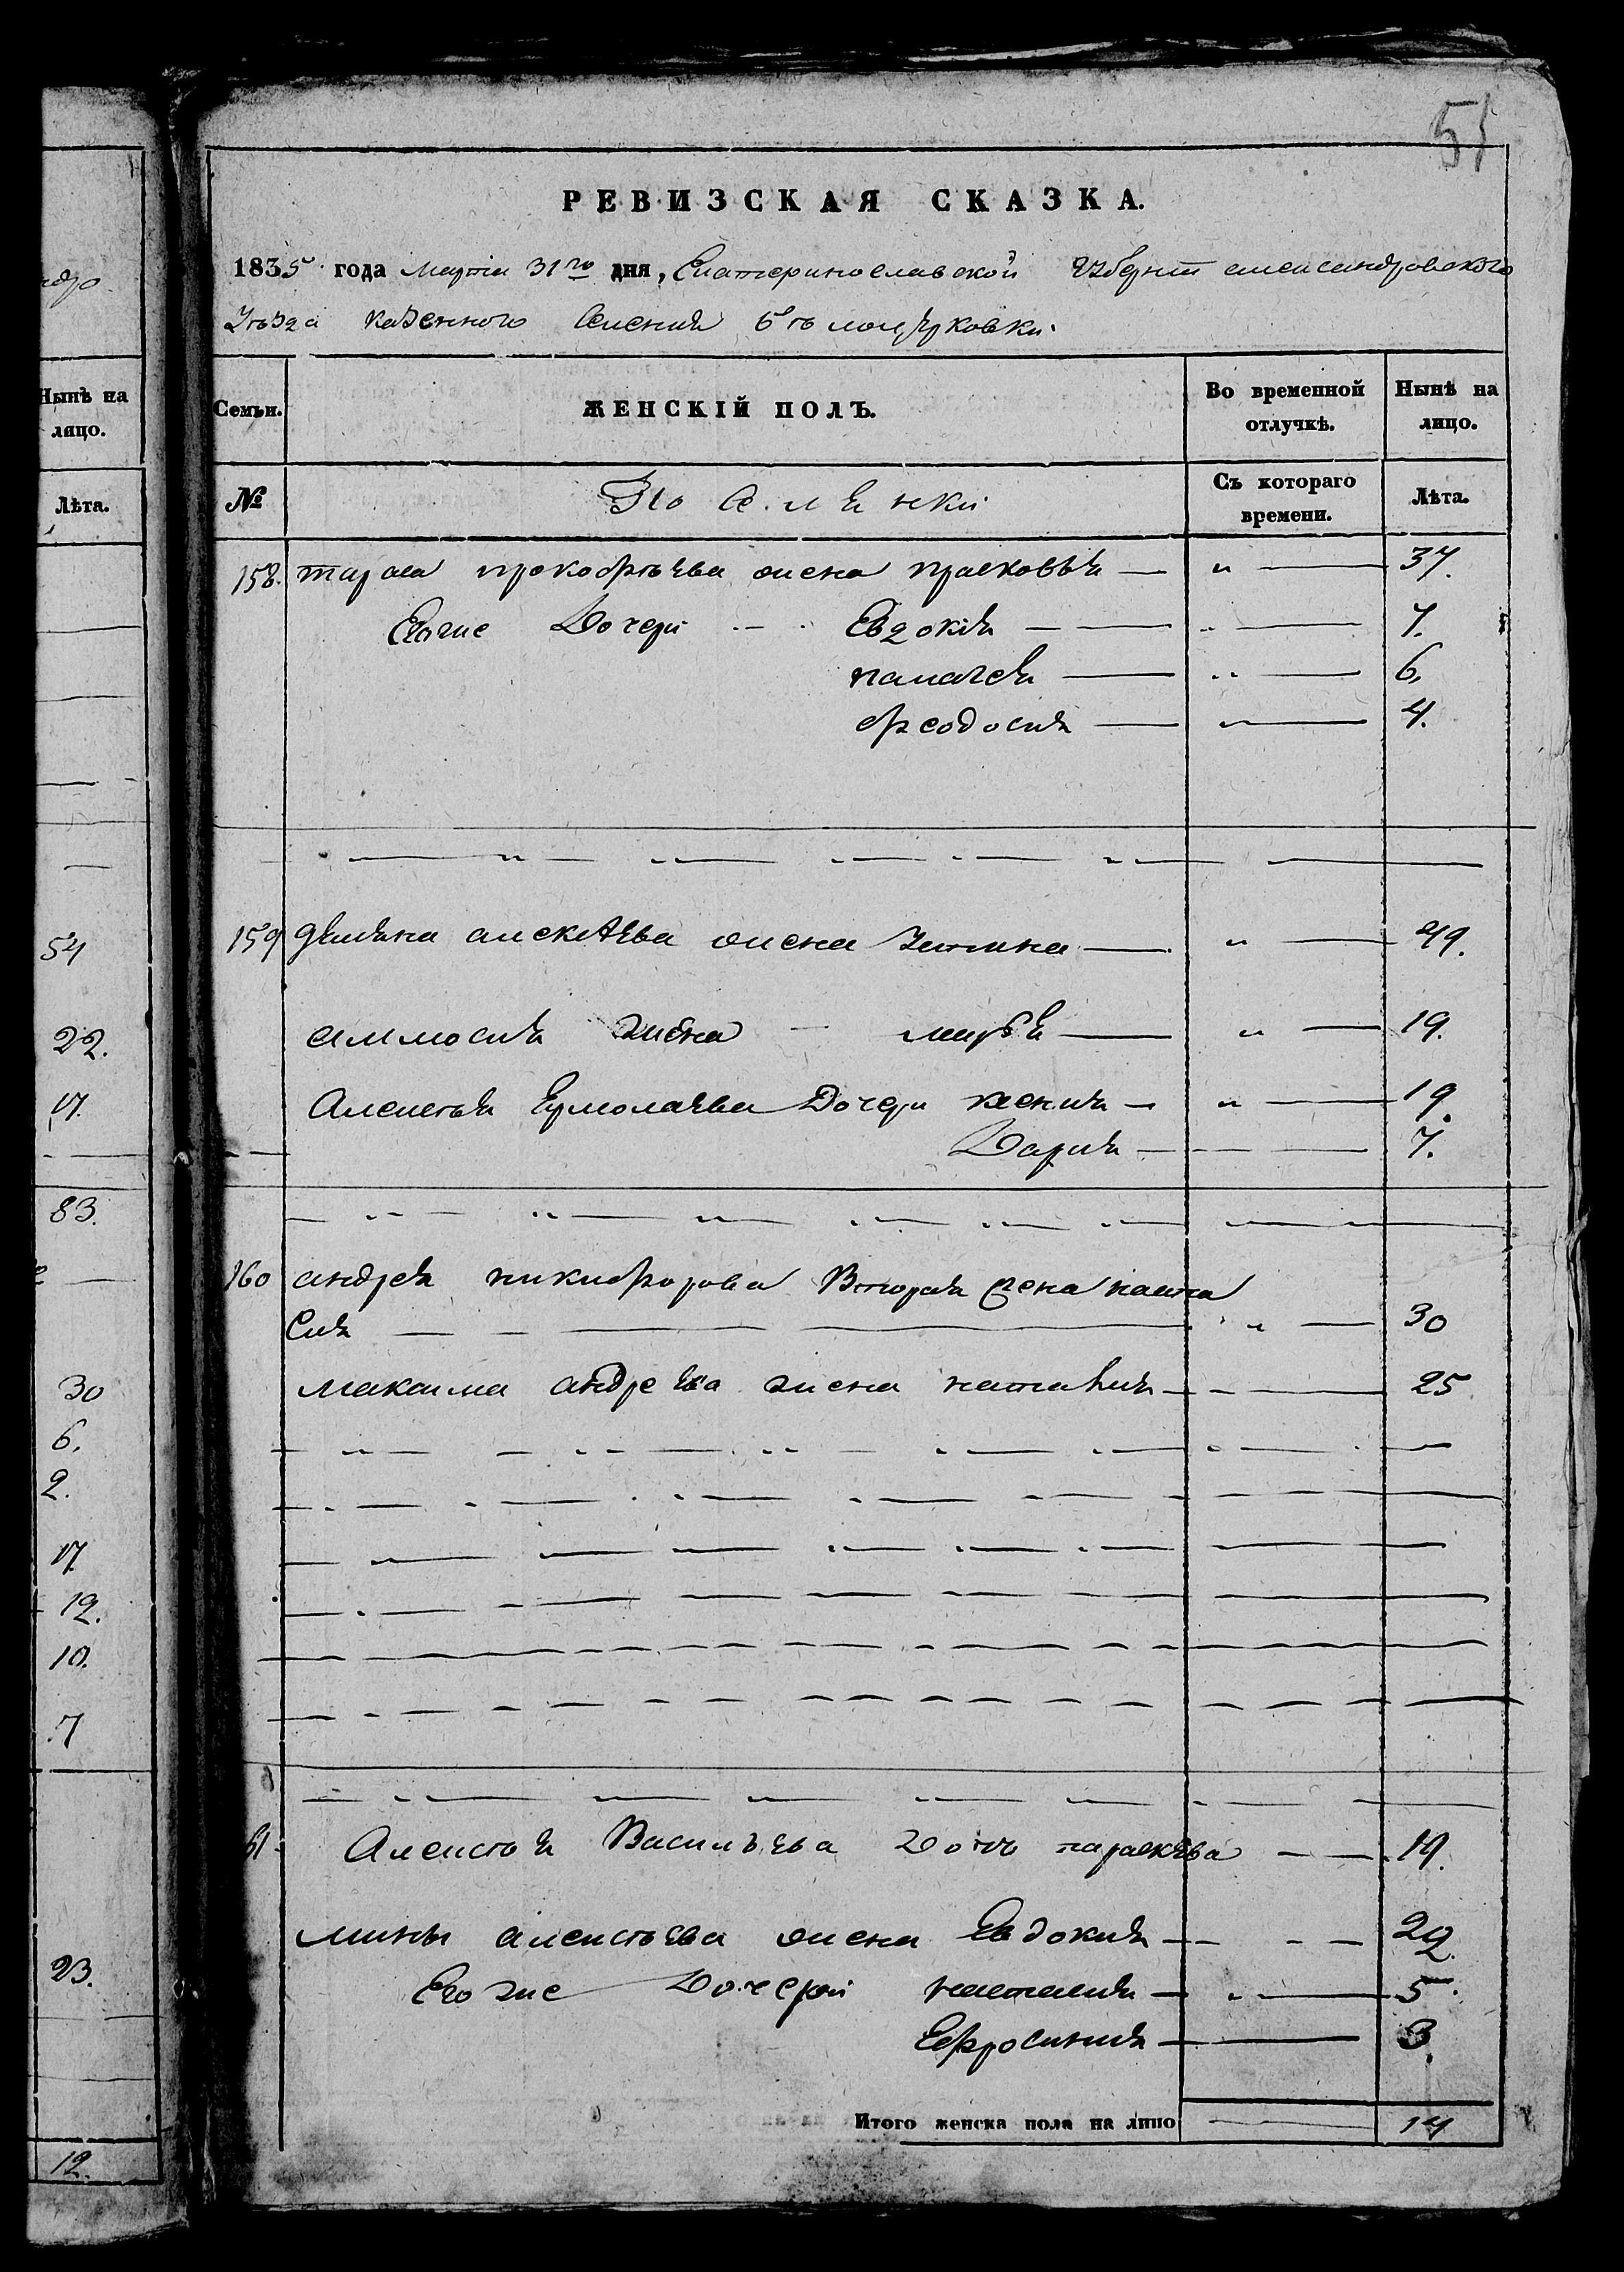 51
РЕВИЗСКАЯ СКАЗКА.
1835 года Марта 31го дня, Екатеринославской Губерніи александровского
Уѣзда казенного Селенія Бѣлоцерковки.
Нынѣ на лицо.
Лѣта.
54
22.
17.
83.
30
6.
2.
17
12.
10.
7
23.
12.
Семьи.
ЖЕНСКІЙ ПОЛЪ.
Во временной отлучкѣ.
Нынѣ на лицо.
№
Съ котораго времени.
Лѣта.
158. тараса прокофьева жена прасковья — " — 37.
Егоже Дочери Евдокія — " — 7.
палагея — " — 6.
феодосия — " — 4.
159 демьяна алексѣева жена Устина — " — 49.
аммосия жена марья — " — 19.
Алексея Ермолаева Дочери ксения — " — 19.
Дария — 7.
160 андрея никифорова Вторая жена наста
сия — " — 30
максима андреева жена наталия — 25
61 Алексея Васильева Дочь параскева — 19.
мины алексеева жена Евдокия — 29.
Егоже Дочери наталия — " — 5.
Ефросиния — 3.
Итого женска пола на лицо — 14